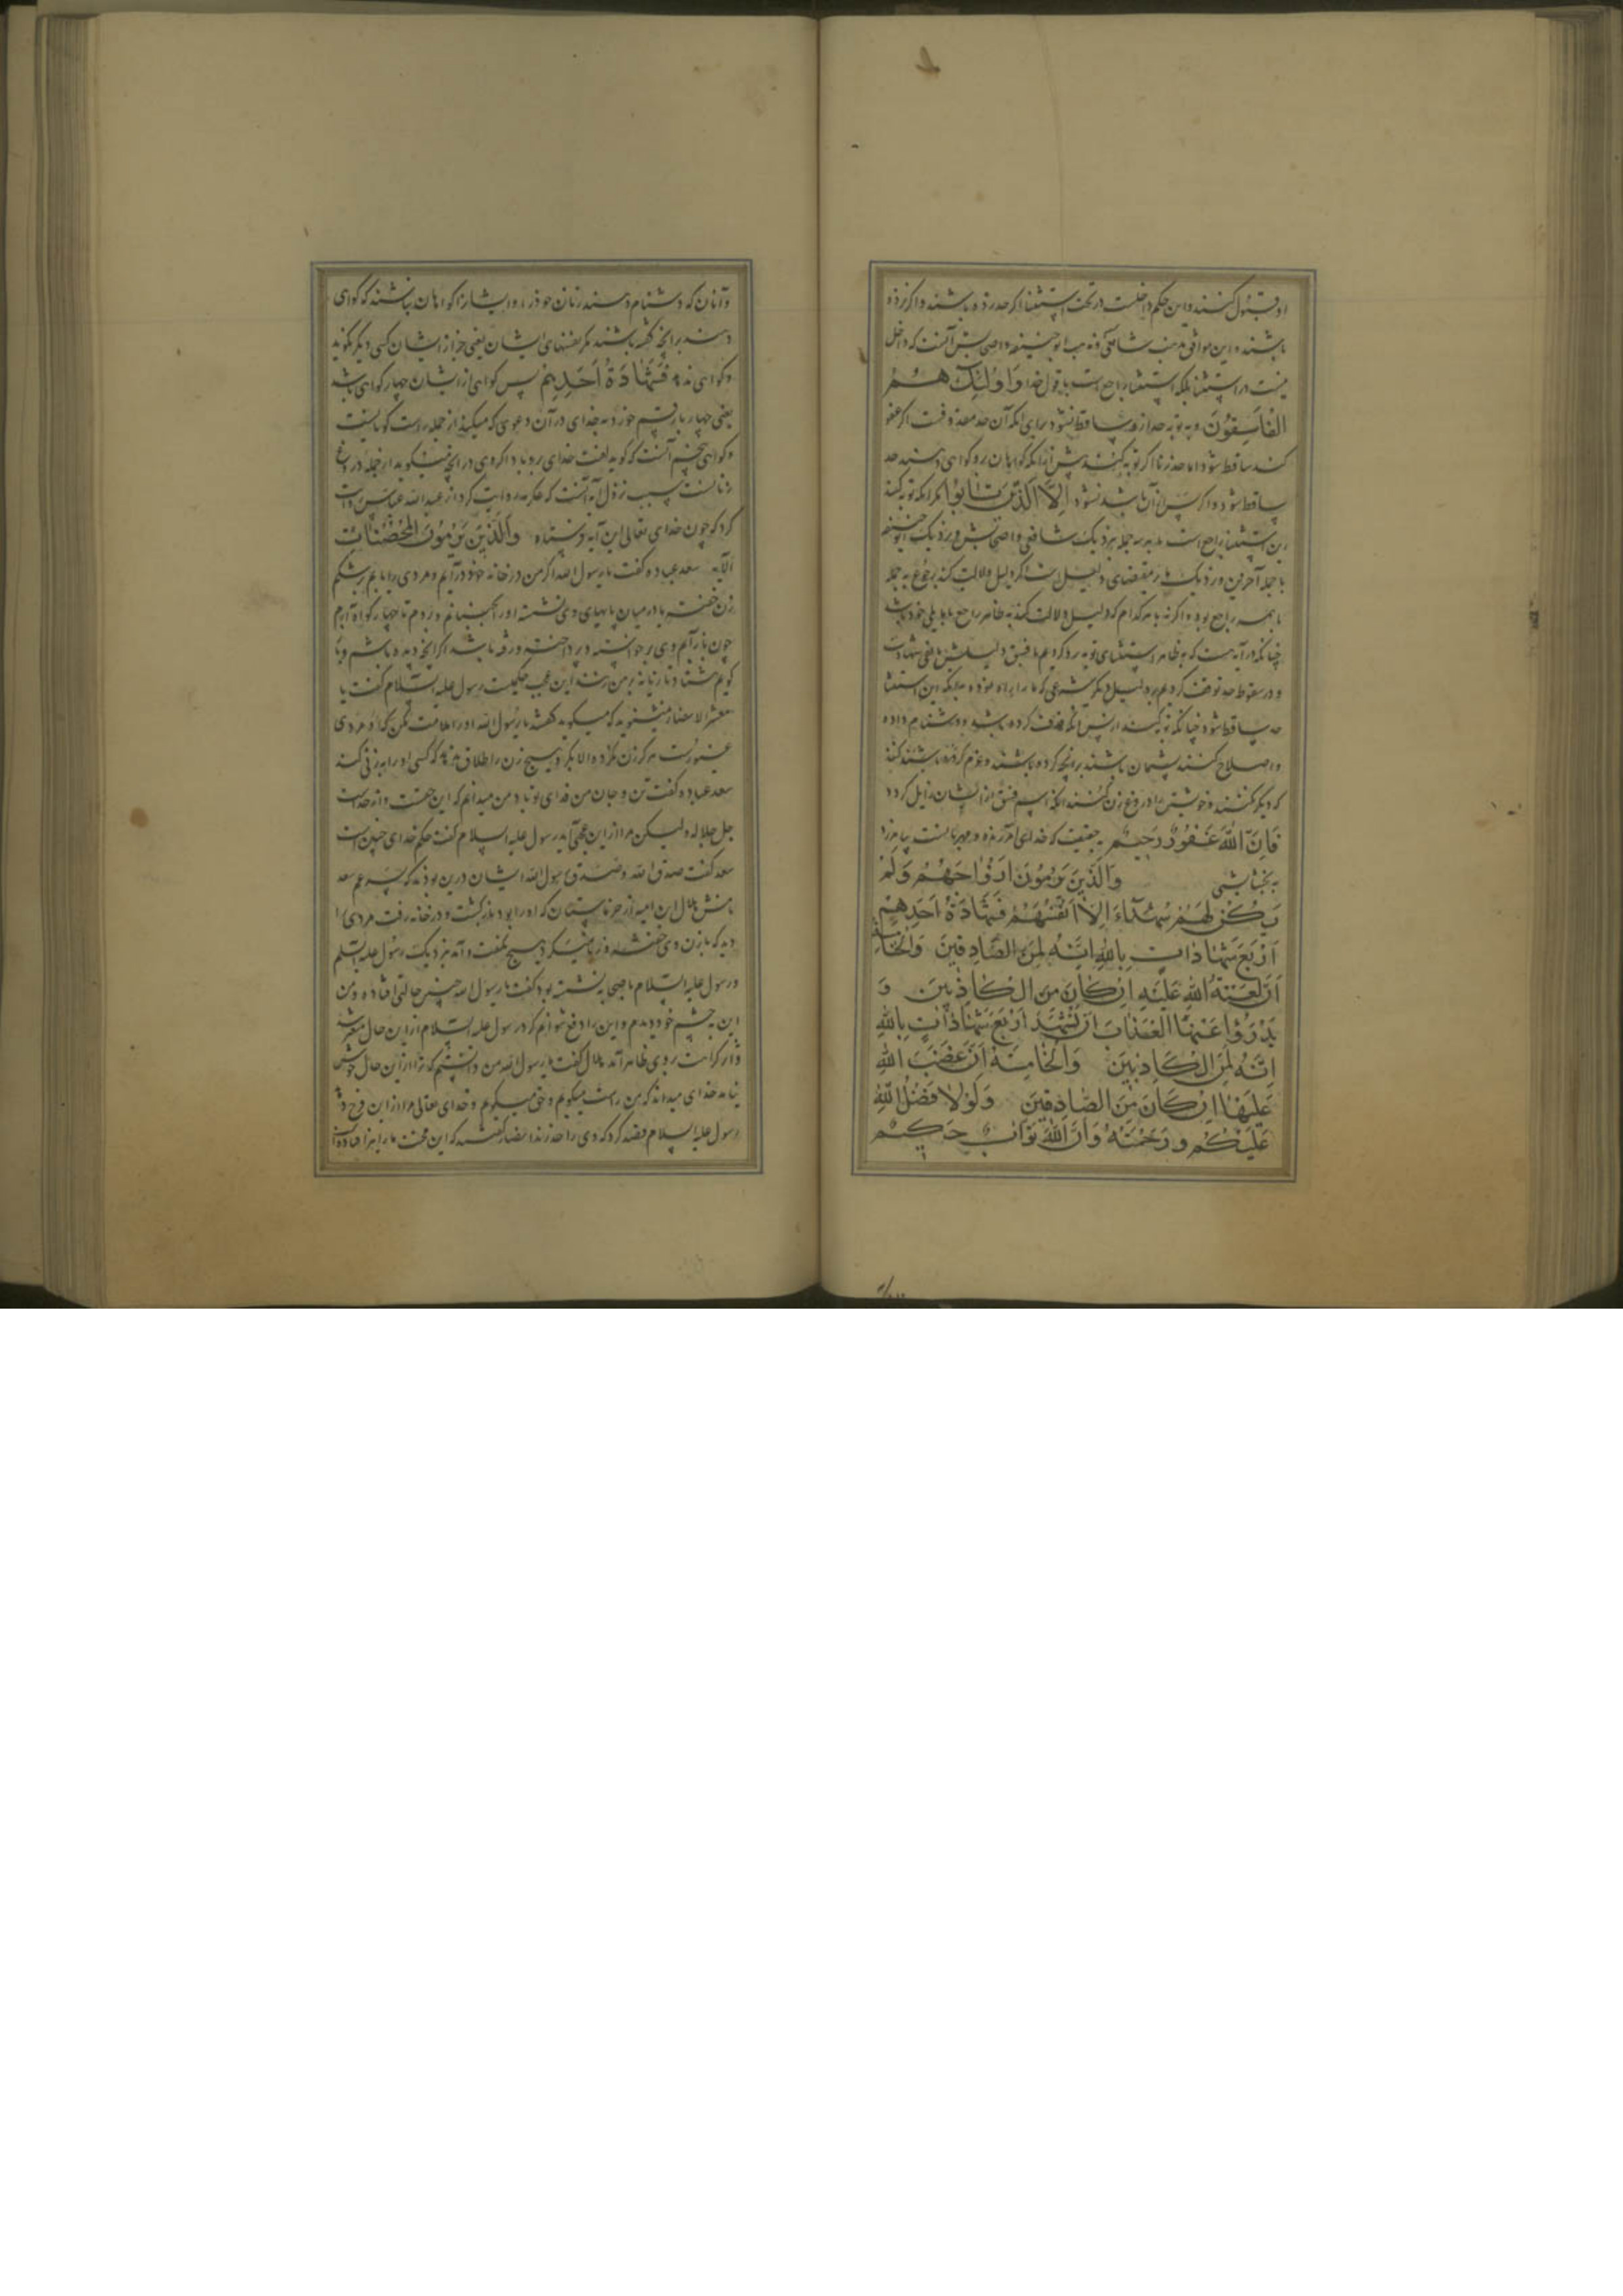 او قبول کنند و این حکم داخلست در تحت استثنا اگر حد زده باشند و اگر نزده
باشند و این موافق مذهب شافعی و مذهب ابو حنیفه و اصحابش آنست که داخل
نیست در استثنا بلکه استثنا راجع است با قول خدا وَاُولٰئِكَ هُمُ
الْفَاسِقُونَ و به توبه حد از او ساقط نشود برای آنکه آن حد مقذوفست اگر عفو
کند ساقط شود اما حد زنا اگر توبه کنند پیش از آنکه گواهان برو گواهی دهند حد
ساقط شود و اگر پس از آن باشد نشود اِلَّا الَّذِينَ تَابُوا مگر آنکه توبه کنند
این استثنا راجع است به هر سه جمله بنزدیک شافعی و اصحابش و نزدیک ابو حنیفه
با جمله آخرین و نزدیک ما بر مقتضای دلیل است اگر دلیل دلالت کند برجوع به جمله
با همه راجع بود و اگر نه با هر کدام که دلیل دلالت کند به ظاهر راجع با
چنانکه در آیه هست که به ظاهر استثنای توبه رد کردیم با فسق
و در سقوط حد توقف کردیم بر دلیل دیگر شرعی که ما را
حد ساقط شود چنانکه توبه کنند از پس آنکه قذف کرده باشند و دشنام داده
و اصلاح کنند پشیمان باشند بر آنچه کرده باشند و عزم کرده باشند
که دیگر نکنند و خویشتن را دروغ زن کنند آنکه اسم فسق از ایشان زایل گردد
فَاِنَّ اللّٰهَ غَفُورٌ رَحِيمٌ بحقیقت که خدای آمرزنده و مهربانست بیامرزد
به بخشایش وَالَّذِينَ يَرْمُونَ اَزْوَاجَهُمْ وَلَمْ
يَكُنْ لَهُمْ شُهَدَآءُ اِلَّا اَنْفُسُهُمْ فَشَهَادَةُ اَحَدِهِمْ
اَرْبَعُ شَهَادَاتٍ بِاللّٰهِ اِنَّهُ لَمِنَ الصَّادِقِينَ وَالْخَامِسَةُ
اَنَّ لَعْنَتَ اللّٰهِ عَلَيْهِ اِنْ كَانَ مِنَ الْكَاذِبِينَ وَ
يَدْرَؤُا عَنْهَا الْعَذَابَ اَنْ تَشْهَدَ اَرْبَعَ شَهَادَاتٍ بِاللّٰهِ
اِنَّهُ لَمِنَ الْكَاذِبِينَ وَالْخَامِسَةَ اَنَّ غَضَبَ اللّٰهِ
عَلَيْهَا اِنْ كَانَ مِنَ الصَّادِقِينَ وَلَوْلَا فَضْلُ اللّٰهِ
عَلَيْكُمْ وَرَحْمَتُهُ وَاَنَّ اللّٰهَ تَوَّابٌ حَكِيمٌ
و آنان که دشنام دهند زنان خود را و ایشان را گواهان نباشند که گواهی
دهند بر آنچه گفته باشند مگر نفسهای ایشان یعنی جز از ایشان کسی دیگر نگوید
و گواهی ندهد فَشَهَادَةُ اَحَدِهِمْ پس گواهی از ایشان چهار گواهی باشد
یعنی چهار بار قسم خورد به خدای در آن دعوی که میکند از جمله راست گویانست
و گواهی پنجم آنست که گوید لعنت خدای برو باد اگر وی در آنچه میگوید از جمله دروغ
زنانست سبب نزول آیه آنست که عکرمه روایت کرد از عبدالله عباس روایت
کرد که چون خدای تعالی این آیه فرستاد وَالَّذِينَ يَرْمُونَ الْمُحْصَنَاتِ
الآیه سعد عباده گفت یا رسول الله اگر من در خانه خود درآیم و مردی را یابم بر شکم
زن خفته یا در میان پایهای وی نشسته او را نجنبانم و نروم تا چهار گواه آرم
چون بازآیم وی برخواسته و پرداخته و رفته باشد اگر آنچه دیده باشم
گویم هشتاد تازیانه بر من زنند این عجب حکمیست رسول علیه السلام گفت یا
معشر الانصار میشنوید که میگوید گفتند یا رسول الله او را ملامت مکن که او مردی
غیورست هرگز زن نکرده الا بکر و هیچ زن را طلاق نداد که کسی او را به زنی کند
سعد عباده گفت تن و جان من فدای تو باد من میدانم که این حقست و از خداست
جل جلاله ولیکن مرا از این عجب آید رسول علیه السلام گفت حکم خدای چنین است
سعد گفت صدق الله و صدق رسول الله ایشان درین بودند که پسر عم سعد
نامش هلال ابن امیه از خرماستان که او را بود بازگشت و در خانه رفت مردی را
دید که با زن وی خفته و زنا میکرد هیچ نگفت و آمد بنزدیک رسول علیه السلم
و رسول علیه السلام با صحابه نشسته بود گفت یا رسول الله چنین حالتی افتاده و من
این به چشم خود دیدم و این را دفع نتوانم کرد رسول علیه السلام از این حال متغیر شد
و اثر کراهت بروی ظاهر آمد هلال گفت یا رسول الله من دانستم که ترا از این حال خوش
نیامد خدای میداند که من راست میگویم و حق میگویم و خدای تعالی مرا از این فرج دهد
رسول علیه السلام قصد کرد که وی را حد زند انصار گفتند که این محنت ما را